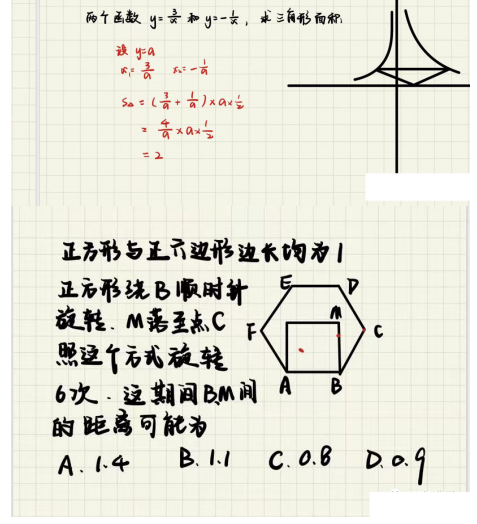 两个函数 y=3/x 和 y=-1/x，求三角形面积
设 y=a
x₁=3/a x₂=-1/a
S△=(3/a+1/a)×a×1/2
=4/a×a×1/2
=2
正方形与正六边形边长均为1
正方形绕B顺时针
旋转．M落至点C
照这个方式旋转
6次．这期间BM间
的距离可能为
E D
M
F C
A B
A.1.4 B.1.1 C.0.8 D.0.9